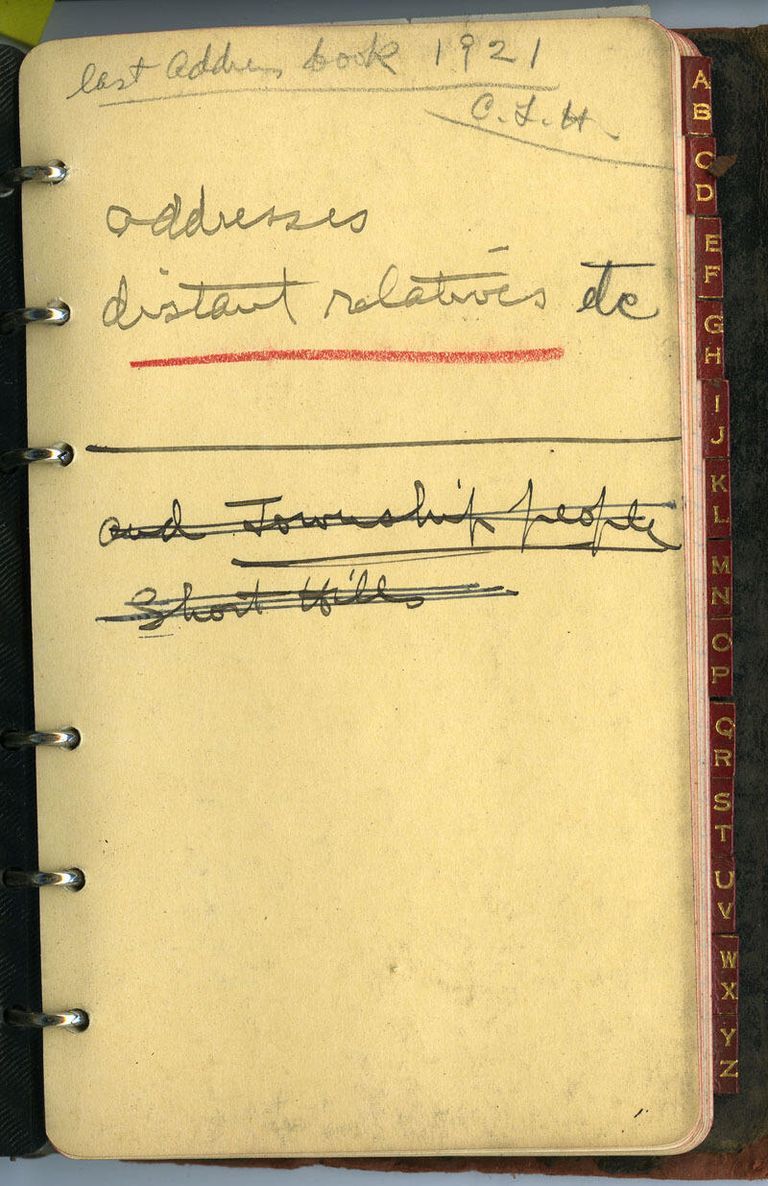 last Address book 1921
C.L.H.
addresses
distant relatives etc
and Township people
Short Hills
A
B
C
D
E
F
G
H
I
J
K
L
M
N
O
P
Q
R
S
T
U
V
W
X
Y
Z